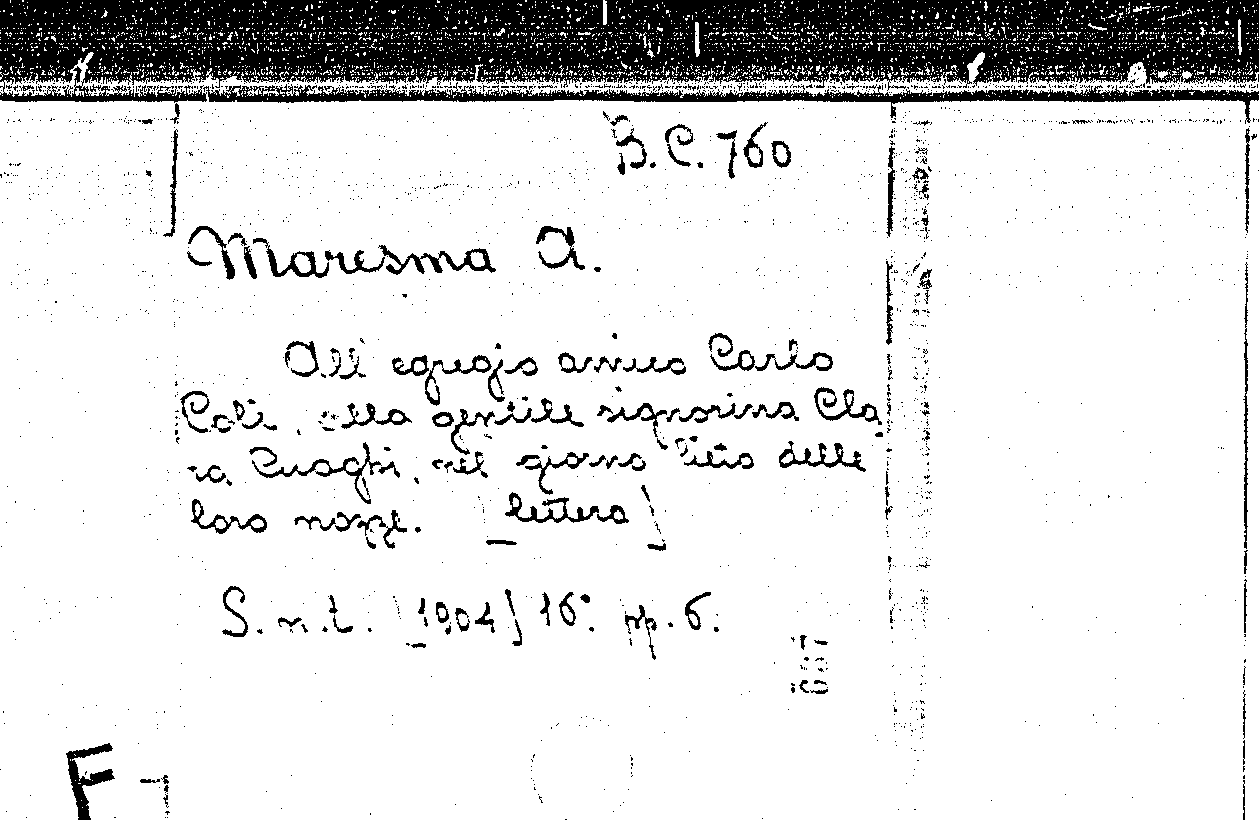 B.C. 760
Maresma A.
All' egregio amico Carlo
Coli, alla gentile signorina Cla
ra Cuoghi, nel giorno lieto delle
loro nozze. [lettera]
S.n.t. [1904] 16°. pp. 6.
F